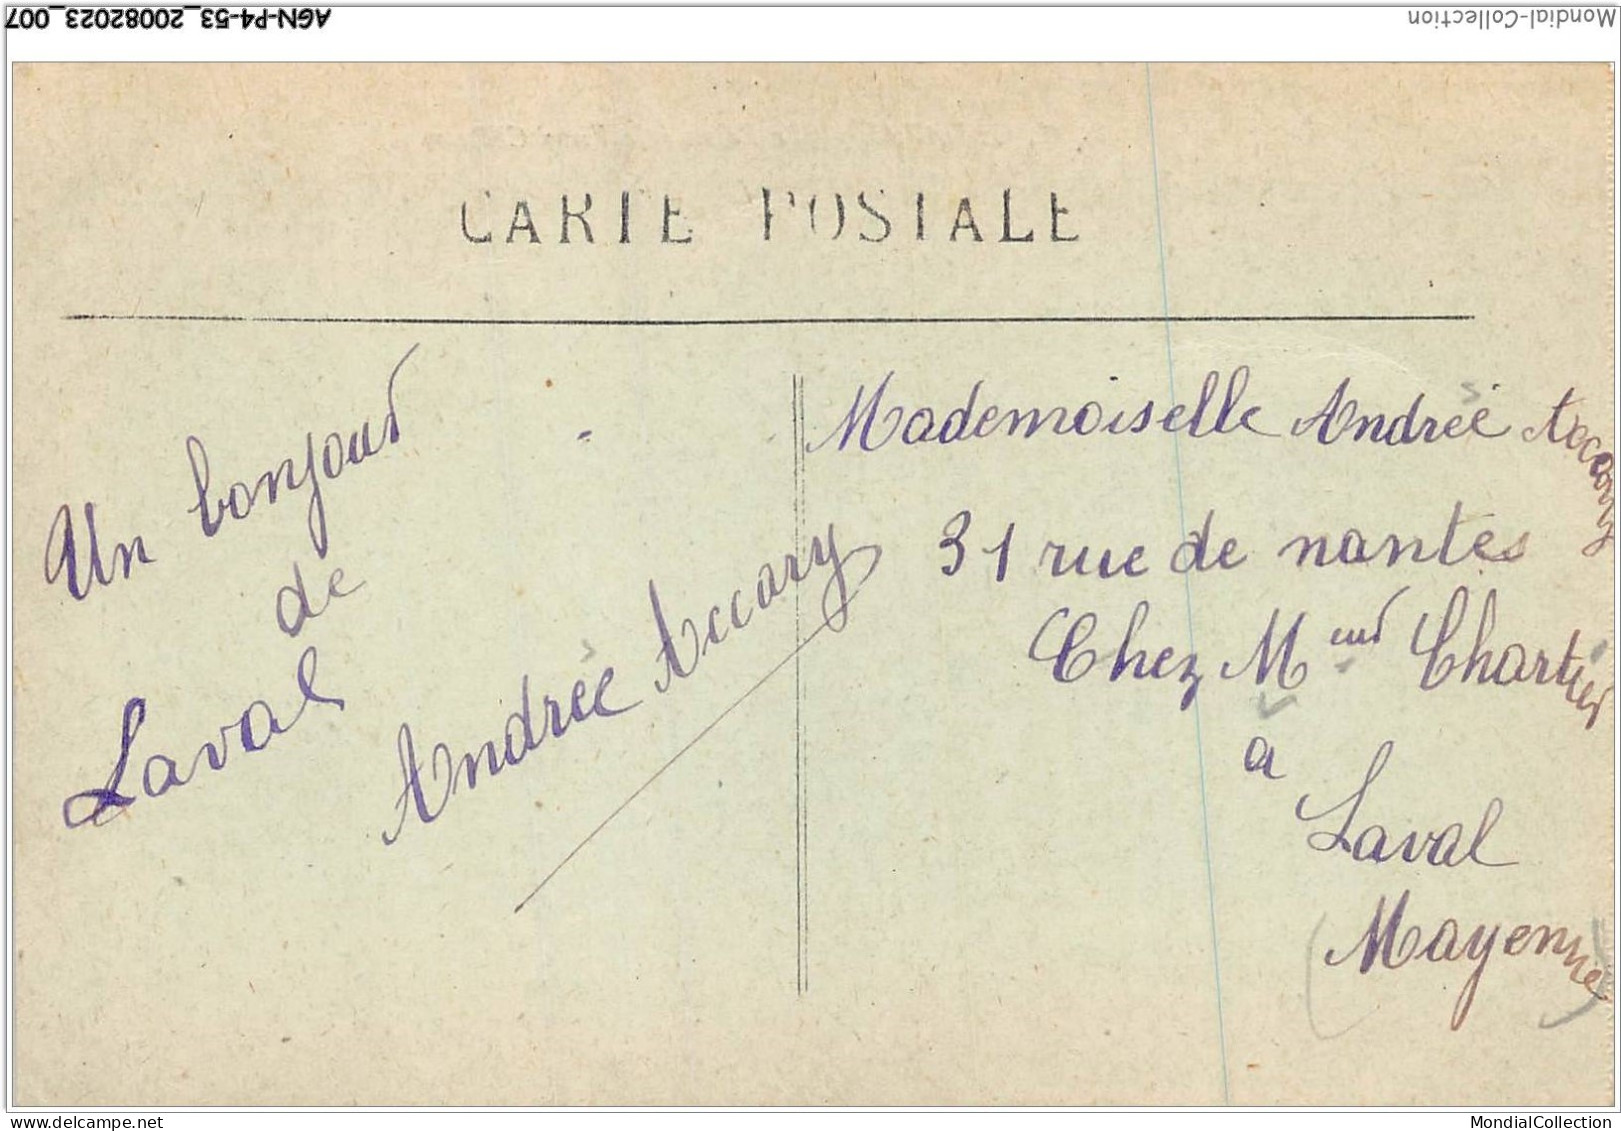 AGN-P4-53_20082023_007
Mondial-Collection
CARTE POSTALE
Un bonjour
de
Laval
Andrée Accary
Mademoiselle Andrée Accary
31 rue de nantes
Chez Meur Chartier
a
Laval
(Mayenne)
www.delcampe.net
MondialCollection